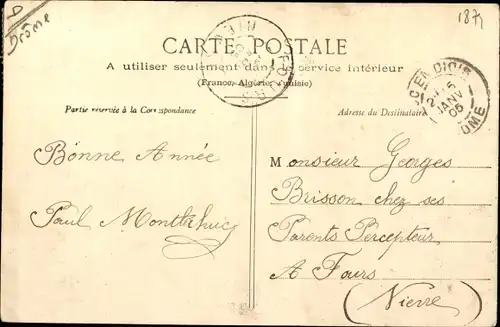 Drôme
1871
CARTE POSTALE
A utiliser seulement dans le service intérieur
(France, Algérie, Tunisie)
Partie reservée à la Correspondance
Adresse du Destinataire
JANV
05
Bonne Année
Paul
Monsieur Georges
Brisson chez ses
Parents Percepteur
A Fours
(Nievre)